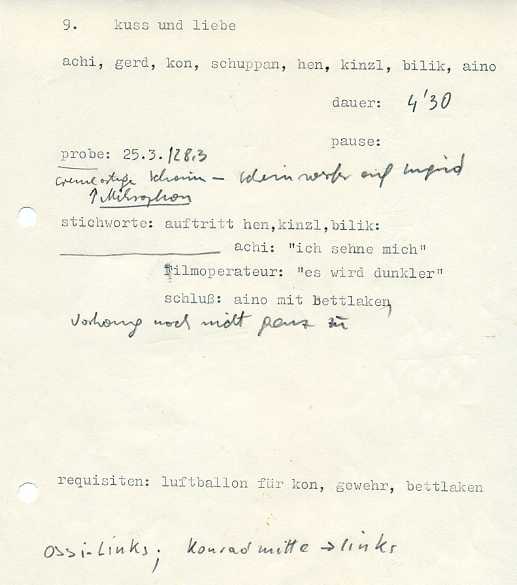 9. kuss und liebe
achi, gerd, kon, schuppan, hen, kinzl, bilik, aino
dauer: 4'30
pause:
probe: 25.3./28.3
– Scheinwerfer auf
↑ Mikrophon
stichworte: auftritt hen,kinzl,bilik:
achi: "ich sehne mich"
filmoperateur: "es wird dunkler"
schluß: aino mit bettlaken,
Vorhang noch nicht ganz zu
requisiten: luftballon für kon, gewehr, bettlaken
Ossi-Links; Konrad mitte → links